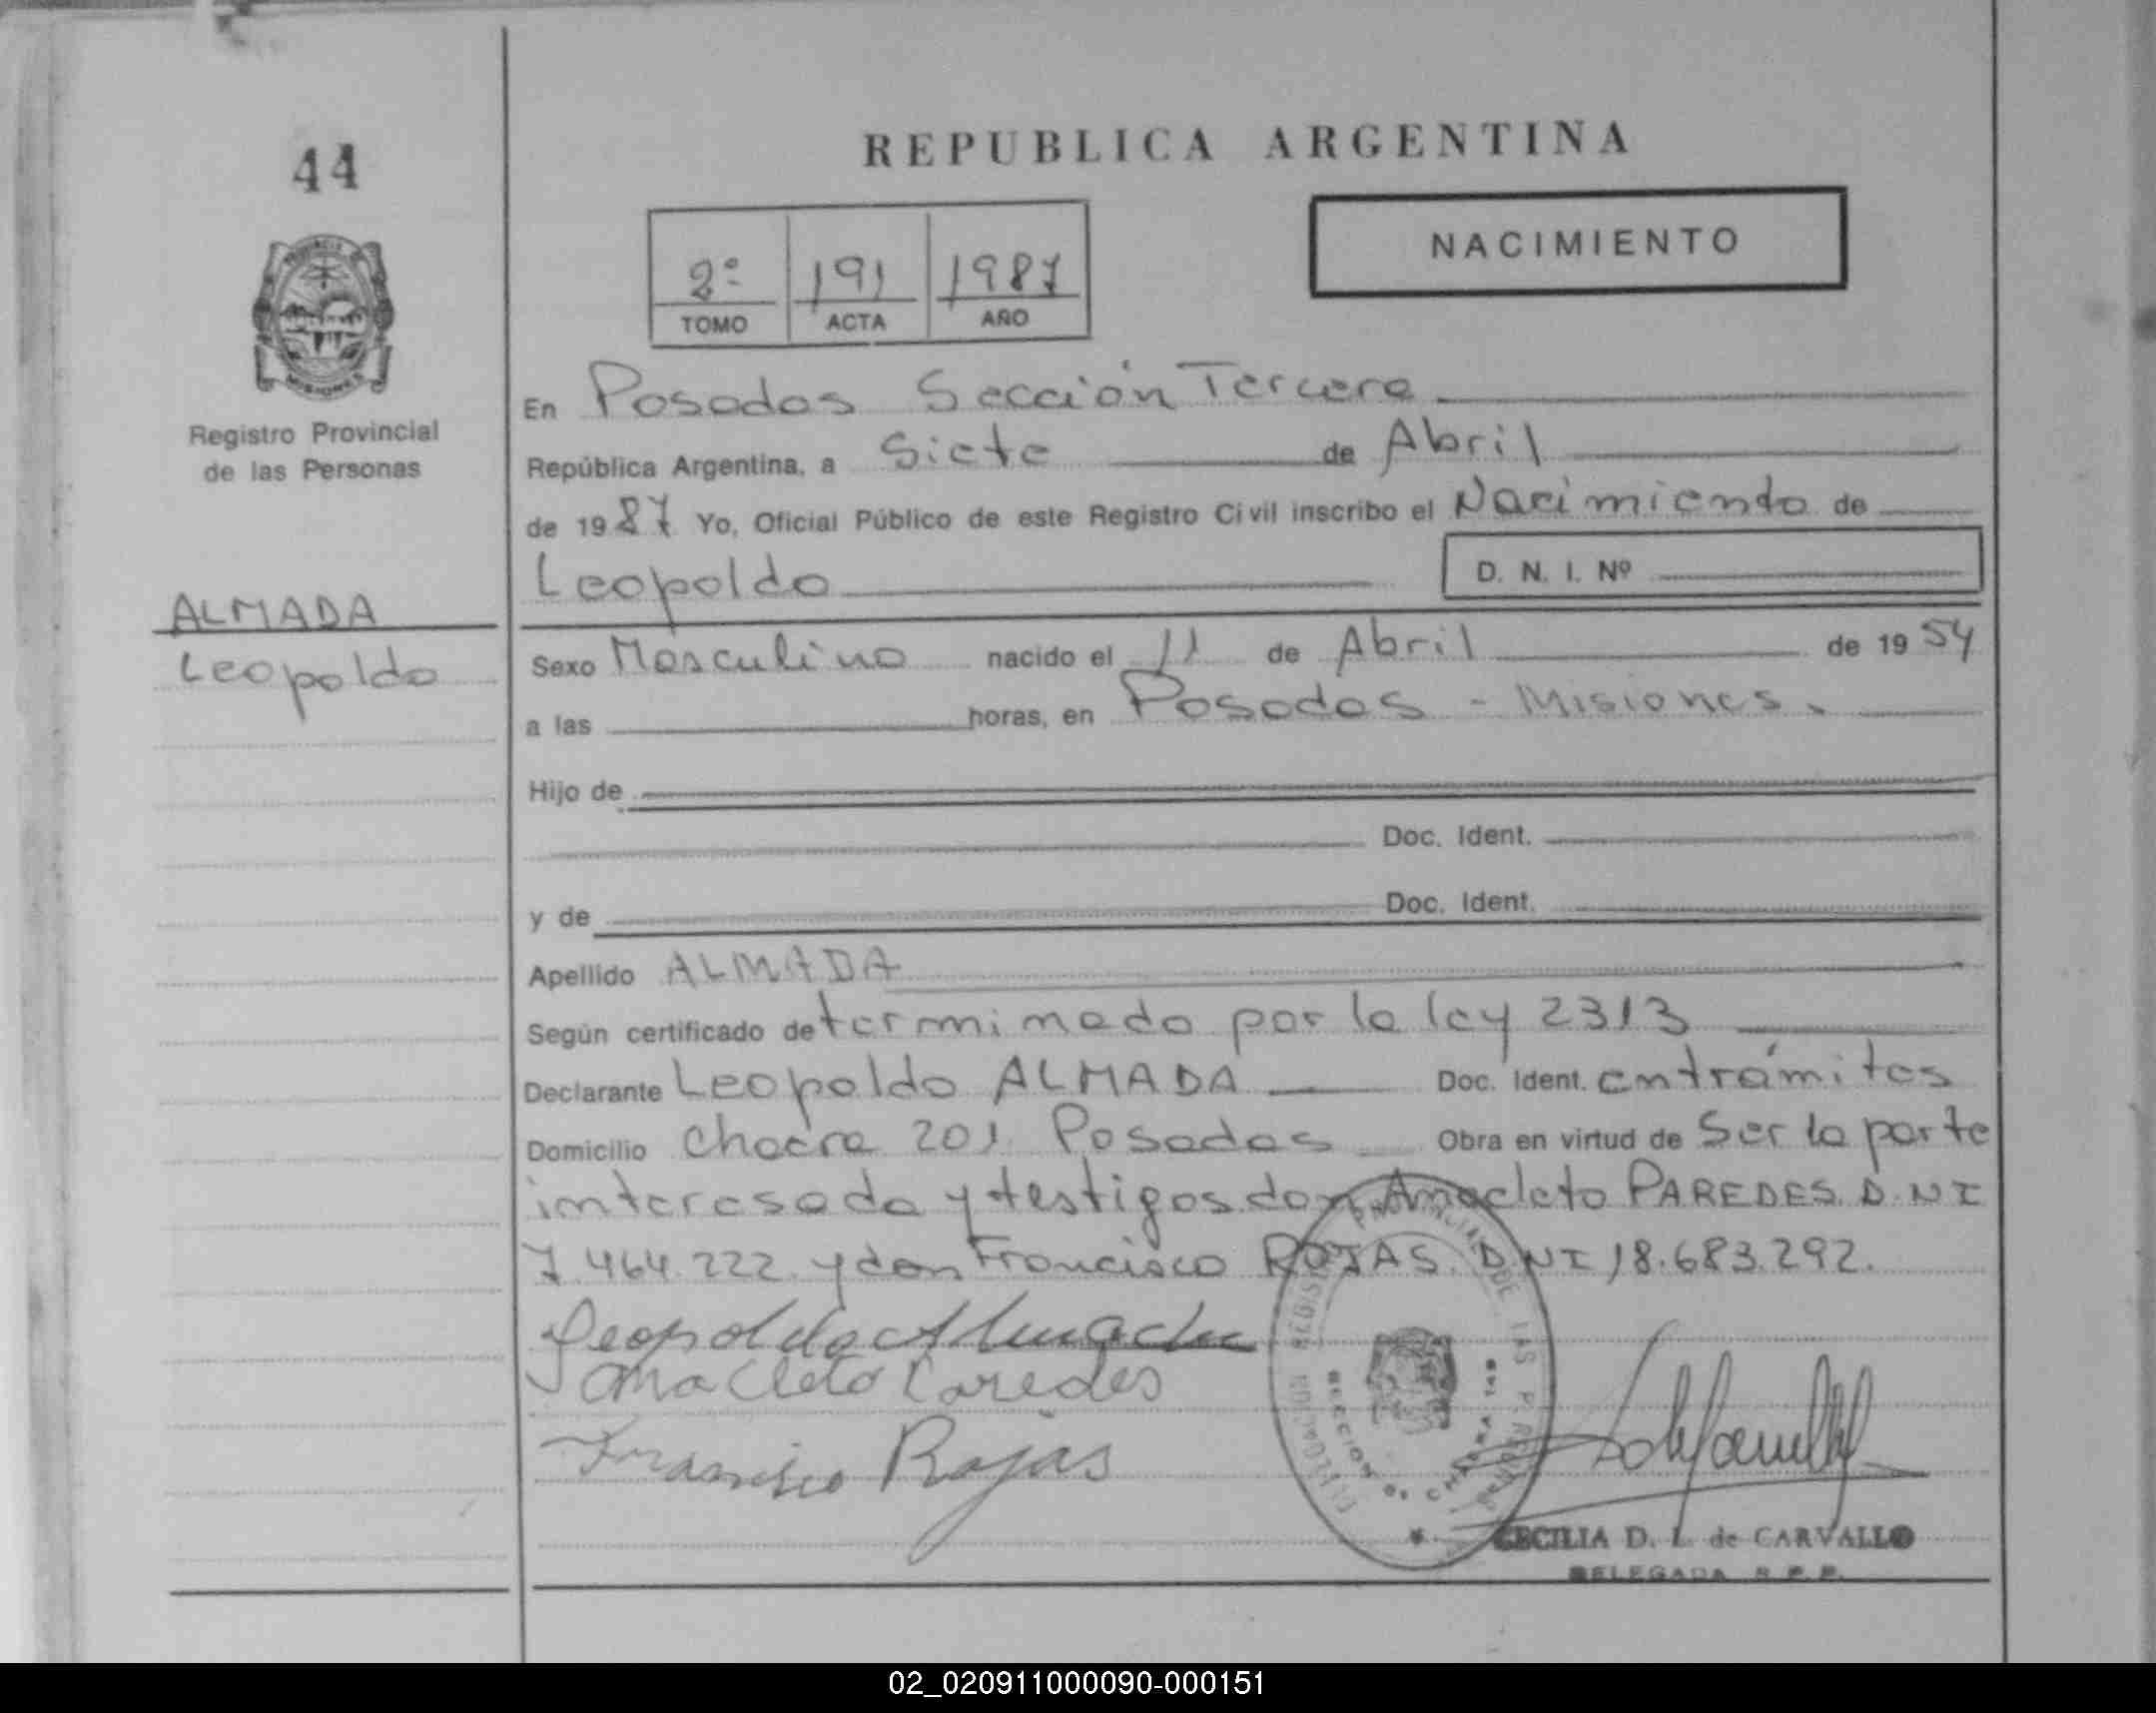 44
REPUBLICA ARGENTINA
NACIMIENTO
2º 191 1987
TOMO ACTA AÑO
Registro Provincial
de las Personas
ALMADA
Leopoldo
En Posadas Sección Tercera
República Argentina, a Siete de Abril
de 1987 Yo, Oficial Público de este Registro Civil inscribo el Nacimiento de
Leopoldo D. N. I. Nº
Sexo Masculino nacido el 11 de Abril de 1954
a las horas, en Posadas - Misiones.
Hijo de
Doc. Ident.
y de Doc. Ident.
Apellido ALMADA
Según certificado determinado por la ley 2313
Declarante Leopoldo ALMADA Doc. Ident. en trámites
Domicilio Chacra 201 Posadas Obra en virtud de Ser la parte
interesada y testigos don Anacleto PAREDES. D.NI
7.464.222. y don Francisco ROJAS. DNI 18.683.292.
Leopoldo Almada
Anacleto Paredes
Francisco Rojas
CECILIA D. L. de CARVALLO
DELEGADA R.P.P.
02_020911000090-000151